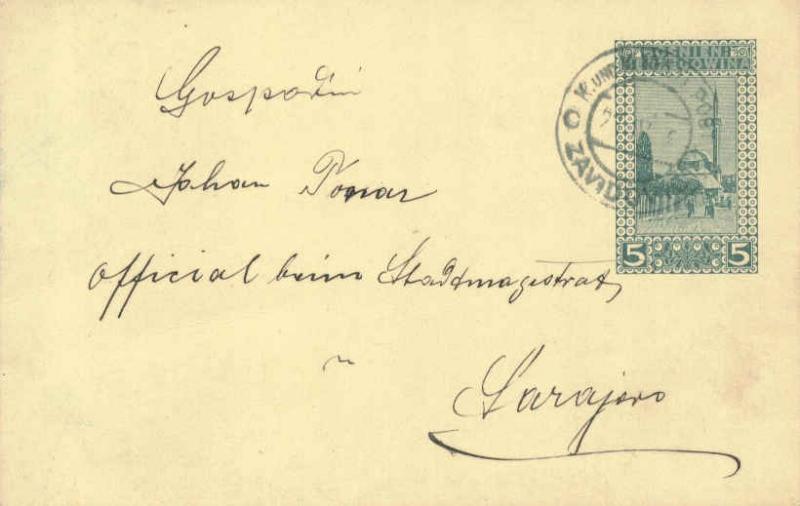 BOSNIEN-H
HERCEGOWINA
K. UND
ZAVID
5 5
Gospodin
Johan
Official beim Stadtmagistrat
in
Sarajevo